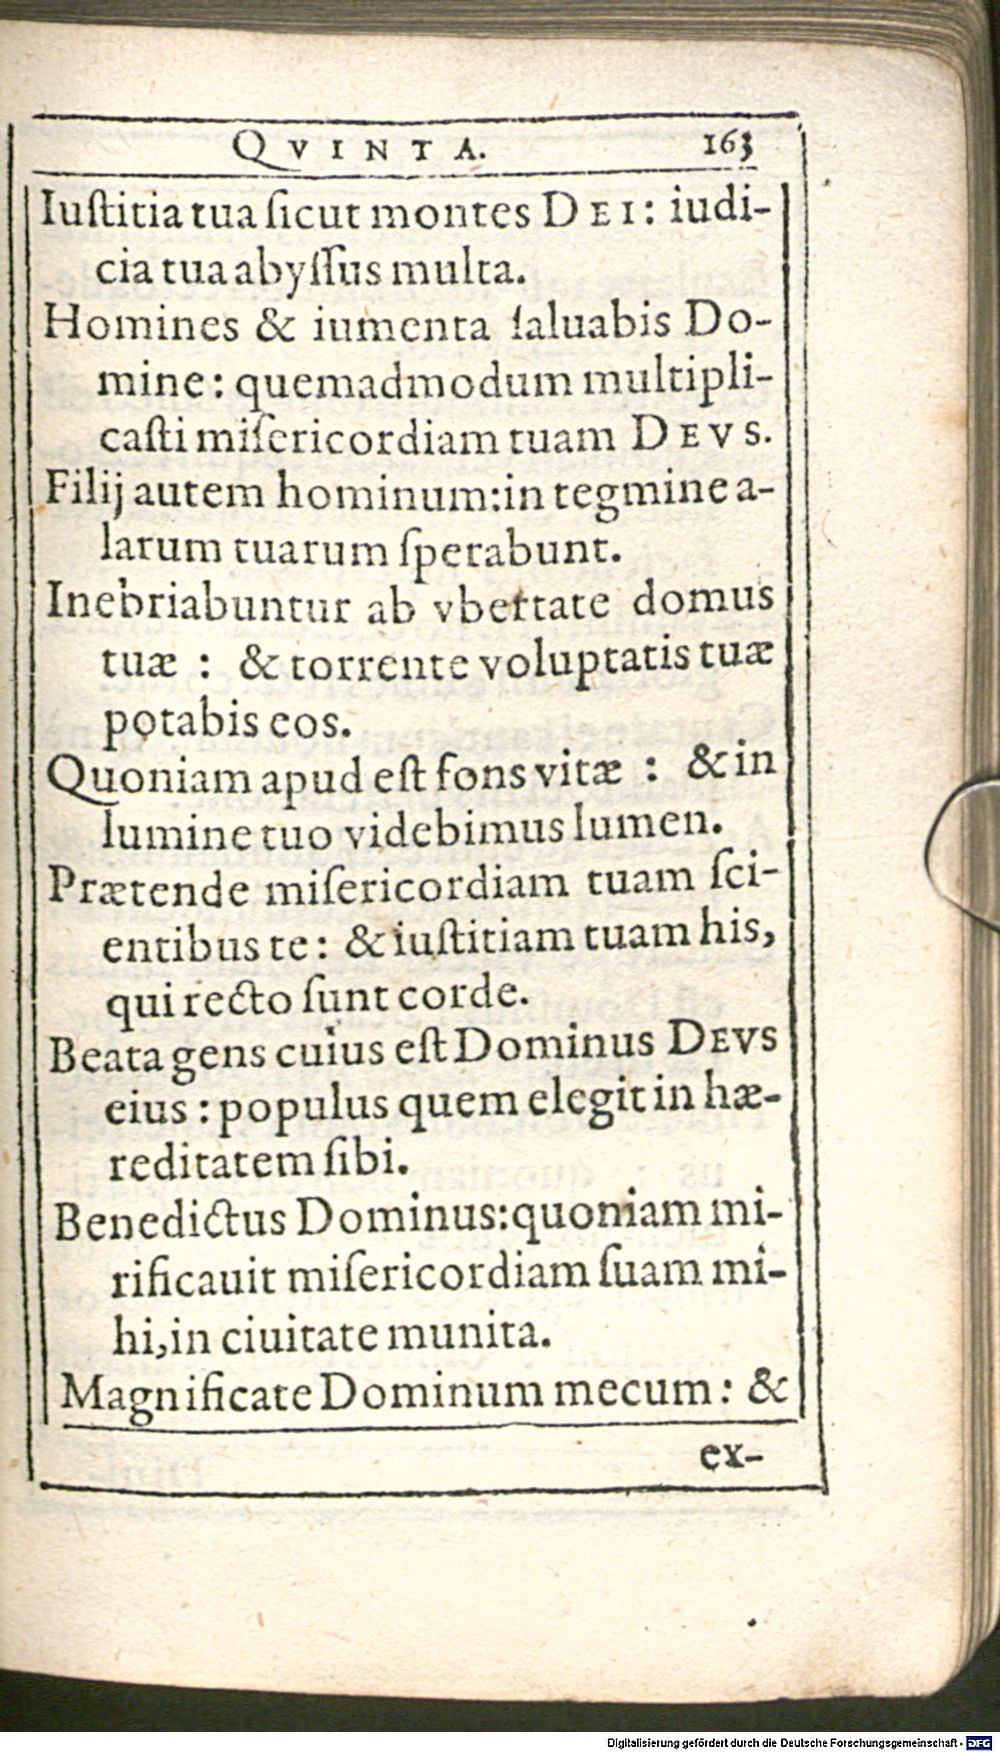 QVINTA. 163
Iuſtitia tua ſicut montes DEI: iudi-
cia tua abyſſus multa.
Homines & iumenta ſaluabis Do-
mine: quemadmodum multipli-
caſti miſericordiam tuam DEVS.
Filij autem hominum: in tegmine a-
larum tuarum ſperabunt.
Inebriabuntur ab vbertate domus
tuæ : & torrente voluptatis tuæ
potabis eos.
Quoniam apud eſt fons vitæ : & in
lumine tuo videbimus lumen.
Prætende miſericordiam tuam ſci-
entibus te: & iuſtitiam tuam his,
qui recto ſunt corde.
Beata gens cuius eſt Dominus DEVS
eius : populus quem elegit in hæ-
reditatem ſibi.
Benedictus Dominus: quoniam mi-
rificauit miſericordiam ſuam mi-
hi, in ciuitate munita.
Magnificate Dominum mecum: &
ex-
Digitalisierung gefördert durch die Deutsche Forschungsgemeinschaft - DFG